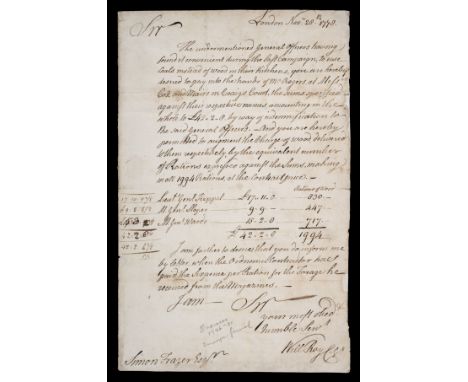 London Nov.r 28th 1778.
Sir
The undermentioned General Officers having
found it convenient during the last Campaign, to use
coals instead of wood in their Kitchens, you are hereby
desired to pay into the hands of Mr Rogers at Mess.rs
Cox and Mair's in Craig's Court, the Sums specified
against their respective names, amounting in the
whole to £42.2.0 by way of indemnification to
the said General Officers. And you are hereby
permitted to augment the Charge of wood delivered
to them respectively by the equivalent number
of Rations expressed against the Sums, making
in all 1994 Rations, at the Contract price.
Rations of Wood
Lieut. Genl. Keppel £17.11.0 830.
M. Genl. Sloper 9.9. 447.
M. Genl. Warde 15.2.0 717.
£42.2.0 1994
I am further to desire that you do inform me
by Letter when the Ordnance Contractor has
paid the Sixpence per Ration for the Forage he
received from the Magazines.
I am Sir
your most obed.t
humble Serv.t
Will: Roy
Simon Frazer Esq.r